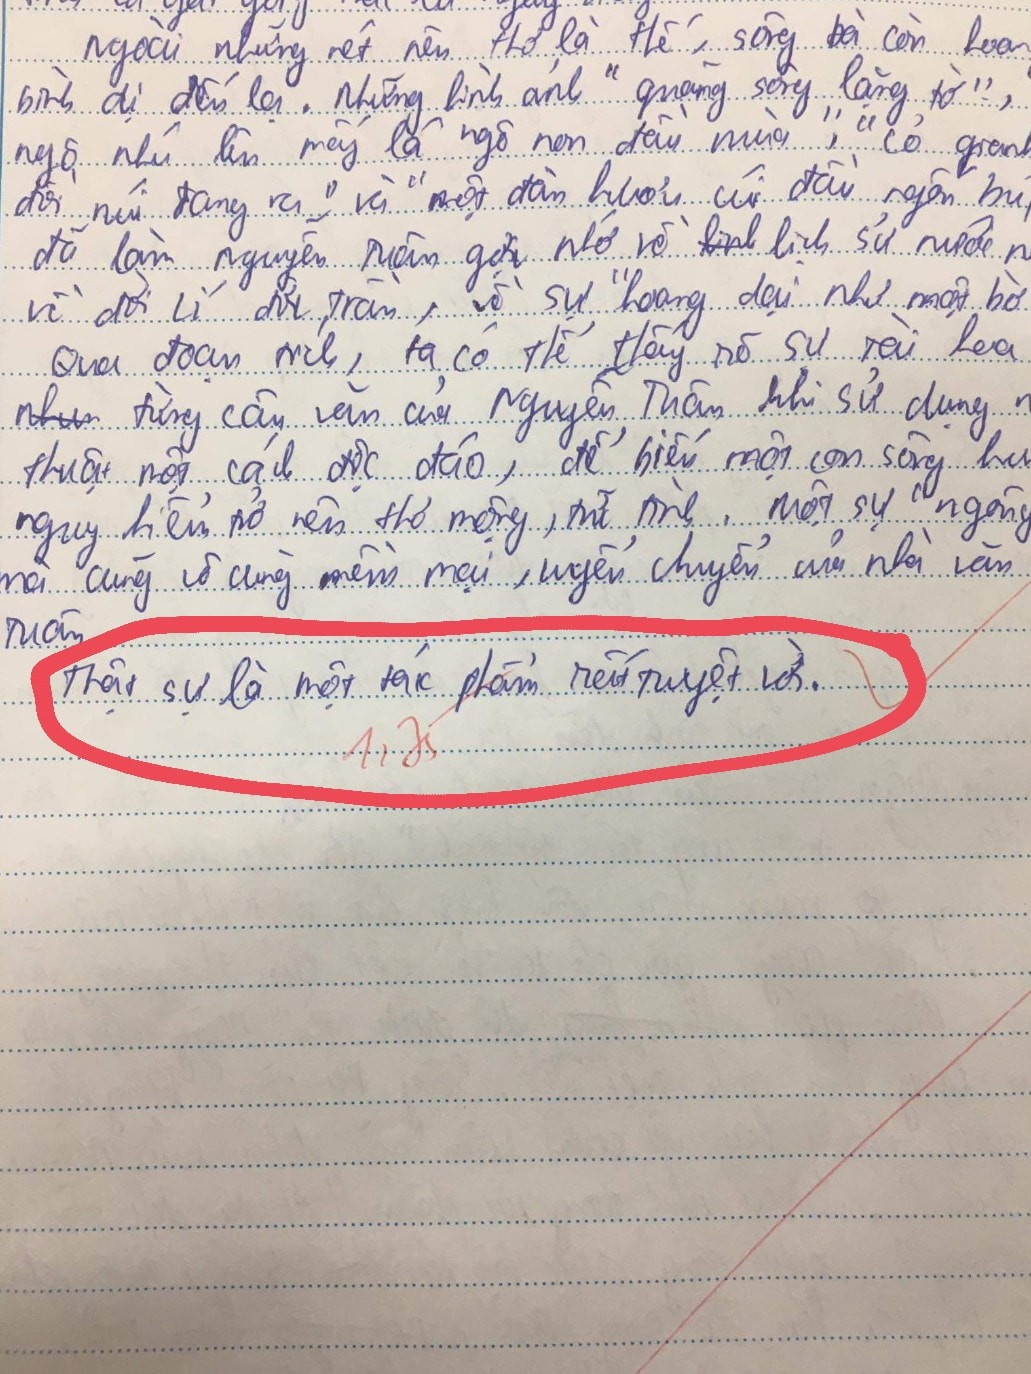 Ngoài những nét nên thơ là thế, sông Đà còn hoan
bình dị đến lạ. Những hình ảnh "quãng sông lặng tờ",
ngô nhú lên mấy lá ngô non đầu mùa", "cỏ gianh
đồi núi đang ra" và "một đàn hươu cúi đầu ngốn bú
đã làm Nguyễn Tuân gợi nhớ về lịch sử nước n
về đời Lí đời Trần, về sự "hoang dại như một bờ
Qua đoạn trích, ta có thể thấy rõ sự tài hoa
từng câu văn của Nguyễn Tuân khi sử dụng n
thuật một cách độc đáo, để biến một con sông hu
nguy hiểm trở nên thơ mộng, trữ tình. Một sự "ngông
mà cũng vô cùng mềm mại, uyển chuyển của nhà văn
Tuân
Thật sự là một tác phẩm rất tuyệt vời.
1,75